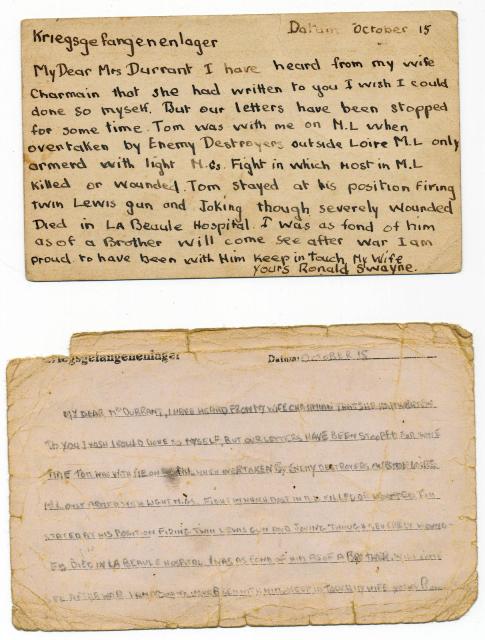 Kriegsgefangenenlager Datum October 15
My Dear Mrs Durrant I have heard from my wife
Charmain that she had written to you I wish I could
done so myself. But our letters have been stopped
for some time. Tom was with me on M.L when
overtaken by Enemy Destroyers outside Loire M.L only
armerd with light M.Gs. Fight in which most in M.L
killed or wounded. Tom stayed at his position firing
twin Lewis gun and Joking though severely wounded
Died in LA Beaule Hospital. I was as fond of him
as of a Brother will come see after war I am
proud to have been with Him Keep in Touch My Wife
yours Ronald Swayne.
Datum: OCTOBER 15
MY DEAR MRS DURRANT, I HAVE HEARD FROM MY WIFE CHARMIAN THAT SHE HAS WRITTEN
TO YOU I WISH I COULD HAVE TO MYSELF, BUT OUR LETTERS HAVE BEEN STOPPED FOR SOME
TIME TOM WAS WITH ME ON WHEN OVERTAKEN BY ENEMY DESTROYERS OUTSIDE LOIRE
M.L ONLY ARMED WITH LIGHT M.GS. FIGHT IN WHICH MOST IN M.L KILLED OR WOUNDED TOM
STAYED AT HIS POSITION FIRING TWIN LEWIS GUN AND JOKING THOUGH SEVERELY WOUND-
ED DIED IN LA BEAULE HOSPITAL I WAS AS FOND OF HIM AS OF A BROTHER. WILL COME
SEE AFTER WAR I AM PROUD TO HAVE BEEN WITH HIM KEEP IN TOUCH WIFE YOURS